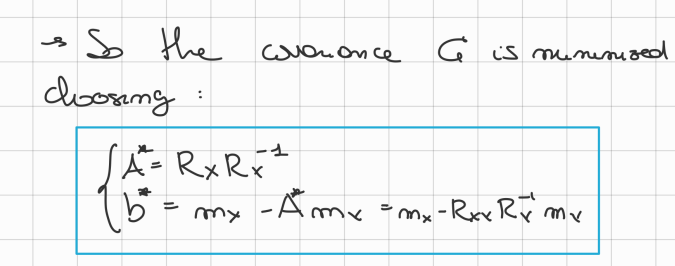 → So the covariance G is minimized
choosing :
A* = R_X R_X^{-1}
b* = m_x - A* m_Y = m_x - R_{XY} R_Y^{-1} m_Y